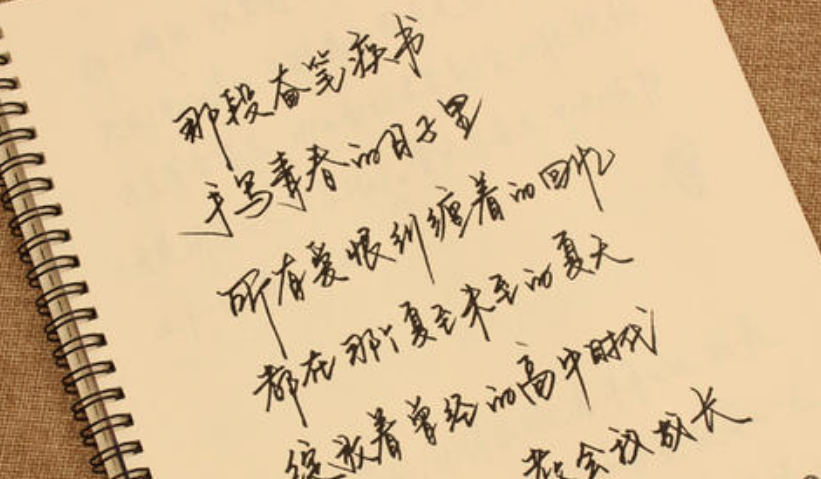 那段奋笔疾书
手写青春的日子里
所有爱恨纠缠着的回忆
都在那个夏至未至的夏天
绽放着曾经的高中时代
教会我成长